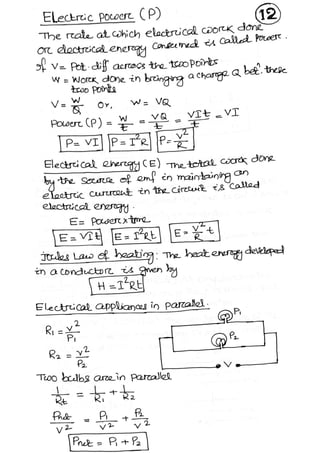 Electric power (P)
12
The rate at which electrical work done
or electrical energy consumed is called power.
If V = Pot. diff across the two points
W = Work done in bringing a charge Q bet. these
two points
V = W/Q or, W = VQ
Power (P) = W/t = VQ/t = VIt/t = VI
P = VI P = I²R P = V²/R
Electrical energy (E) The total work done
by the source of emf in maintaining an
electric current in the circuit is called
electrical energy.
E = Power x time
E = VIt E = I²Rt E = V²/R t
Joules Law of heating : The heat energy developed
in a conductor is given by
H = I²Rt
Electrical appliances in parallel.
P₁
R₁ = V²/P₁
P₂
R₂ = V²/P₂
V
Two bulbs are in parallel
1/Rt = 1/R₁ + 1/R₂
Pnet/V² = P₁/V² + P₂/V²
Pnet = P₁ + P₂